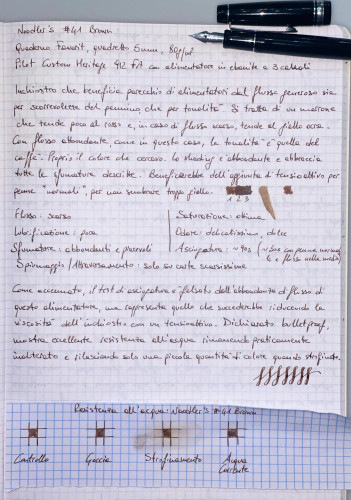 Noodler's #41 Brown
Quaderno Favorit, quadretto 5mm, 80g/m²
Pilot Custom Heritage 912 FA con alimentatore in ebanite a 3 canali
Inchiostro che beneficia parecchio di alimentatori dal flusso generoso sia
per scorrevolezza del pennino che per tonalità. Si tratta di un marrone
che tende poco al rosso e, in caso di flusso scarso, tende al giallo ocra.
Con flusso abbondante, come in questo caso, la tonalità è quella del
caffè. Proprio il colore che cercavo. Lo shading è abbondante e abbraccia
tutte le sfumature descritte. Beneficerebbe dell'aggiunta di tensioattivo per
penne "normali", per non sembrare troppo giallo.
1 2 3
Flusso: scarso
Saturazione: ottima
Lubrificazione: poca
Odore: delicatissimo, dolce
Sfumature: abbondanti e piacevoli
Asciugatura: ~40s (~20s con penne normali
e flusso nella media)
Spiumaggio/Attraversamento: solo su carte scarsissime
Come accennato, il test di asciugatura è falsato dall'abbondanza di flusso di
questo alimentatore, ma rappresenta quello che succederebbe riducendo la
viscosità dell'inchiostro con un tensioattivo. Dichiarato bulletproof,
mostra eccellente resistenza all'acqua rimanendo praticamente
inalterato e rilasciando solo una piccola quantità di colore quando strofinato.
Resistenza all'acqua: Noodler's #41 Brown
Controllo
Goccia
Strofinamento
Acqua
Corrente